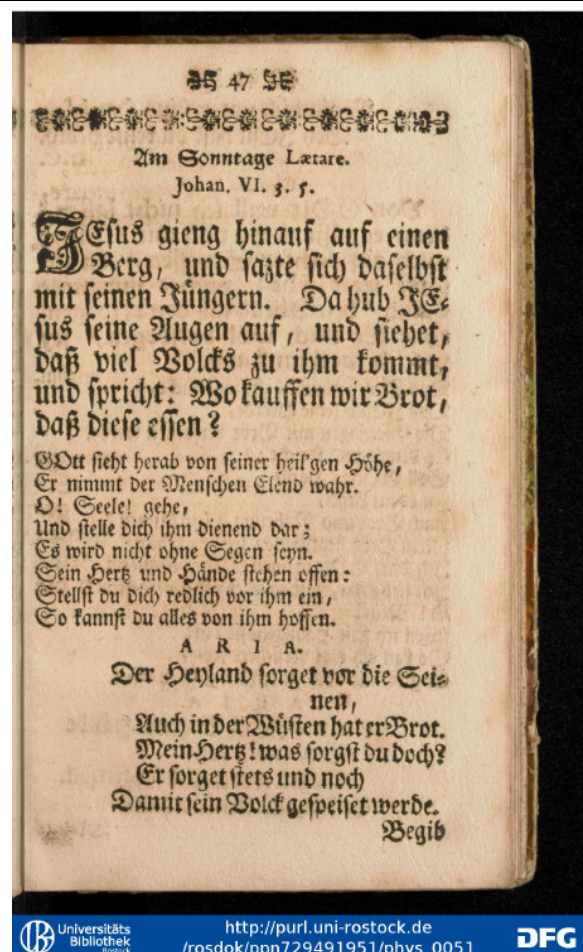 47
Am Sonntage Lætare.
Johan. VI. 3. 5.
JEsus gieng hinauf auf einen
Berg, und sazte sich daselbst
mit seinen Jüngern. Da hub JE-
sus seine Augen auf, und siehet,
daß viel Volcks zu ihm kommt,
und spricht: Wo kauffen wir Brot,
daß diese essen?
GOtt sieht herab von seiner heil'gen Höhe,
Er nimmt der Menschen Elend wahr.
O! Seele! gehe,
Und stelle dich ihm dienend dar;
Es wird nicht ohne Segen seyn.
Sein Hertz und Hände stehen offen:
Stellst du dich redlich vor ihm ein,
So kannst du alles von ihm hoffen.
A R I A.
Der Heyland sorget vor die Sei-
nen,
Auch in der Wüsten hat er Brot.
Mein Hertz! was sorgst du doch?
Er sorget stets und noch
Damit sein Volck gespeiset werde.
Begib
Universitäts
Bibliothek
Rostock
http://purl.uni-rostock.de
/rosdok/ppn729491951/phys_0051
DFG